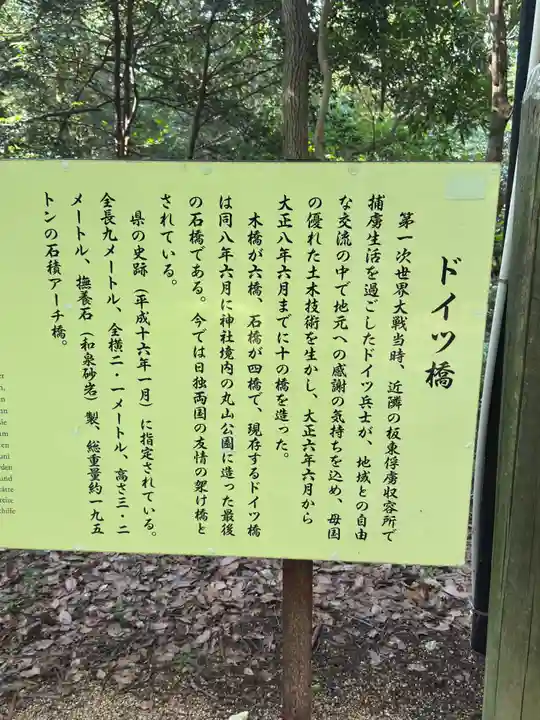 ドイツ橋
第一次世界大戦当時、近隣の板東俘虜収容所で
捕虜生活を過ごしたドイツ兵士が、地域との自由
な交流の中で地元への感謝の気持ちを込め、母国
の優れた土木技術を生かし、大正六年六月から
大正八年六月までに十の橋を造った。
木橋が六橋、石橋が四橋で、現存するドイツ橋
は同八年六月に神社境内の丸山公園に造った最後
の石橋である。今では日独両国の友情の架け橋と
されている。
県の史跡（平成十六年一月）に指定されている。
全長九メートル、全横二・一メートル、高さ三・二
メートル、撫養石（和泉砂岩）製、総重量約一九五
トンの石積アーチ橋。